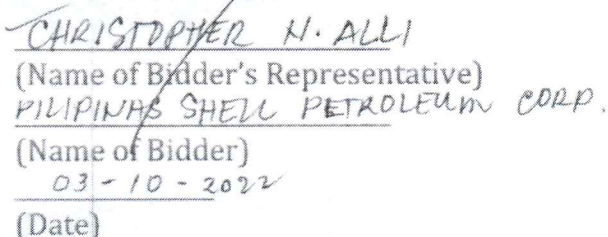 CHRISTOPHER N. ALLI
(Name of Bidder's Representative)
PILIPINAS SHELL PETROLEUM CORP.
(Name of Bidder)
03-10-2022
(Date)